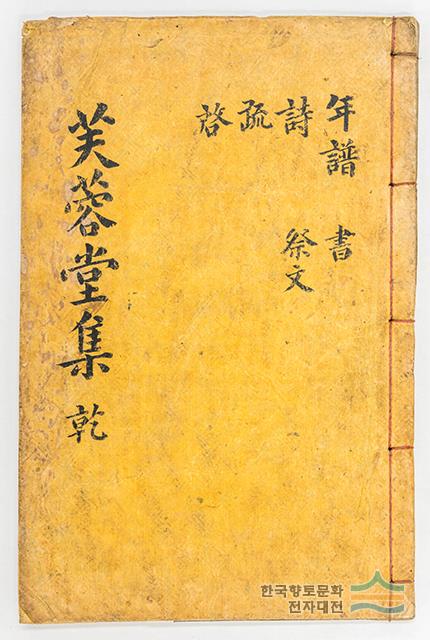 年譜 書
詩 祭文
疏
啓
芙蓉堂集 乾
한국향토문화
전자대전